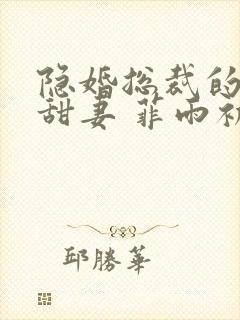 隐婚总裁的
甜妻 菲雨
邱勝華